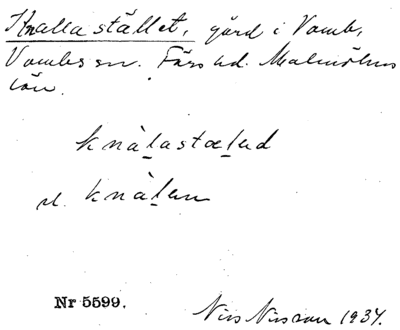 Knalla stället, gård i Vomb,
Vombs sn. Färs hd. Malmöhus
län.
knàlastælud
el. knàlen
Nr 5599.
Nils Nilsson 1934.